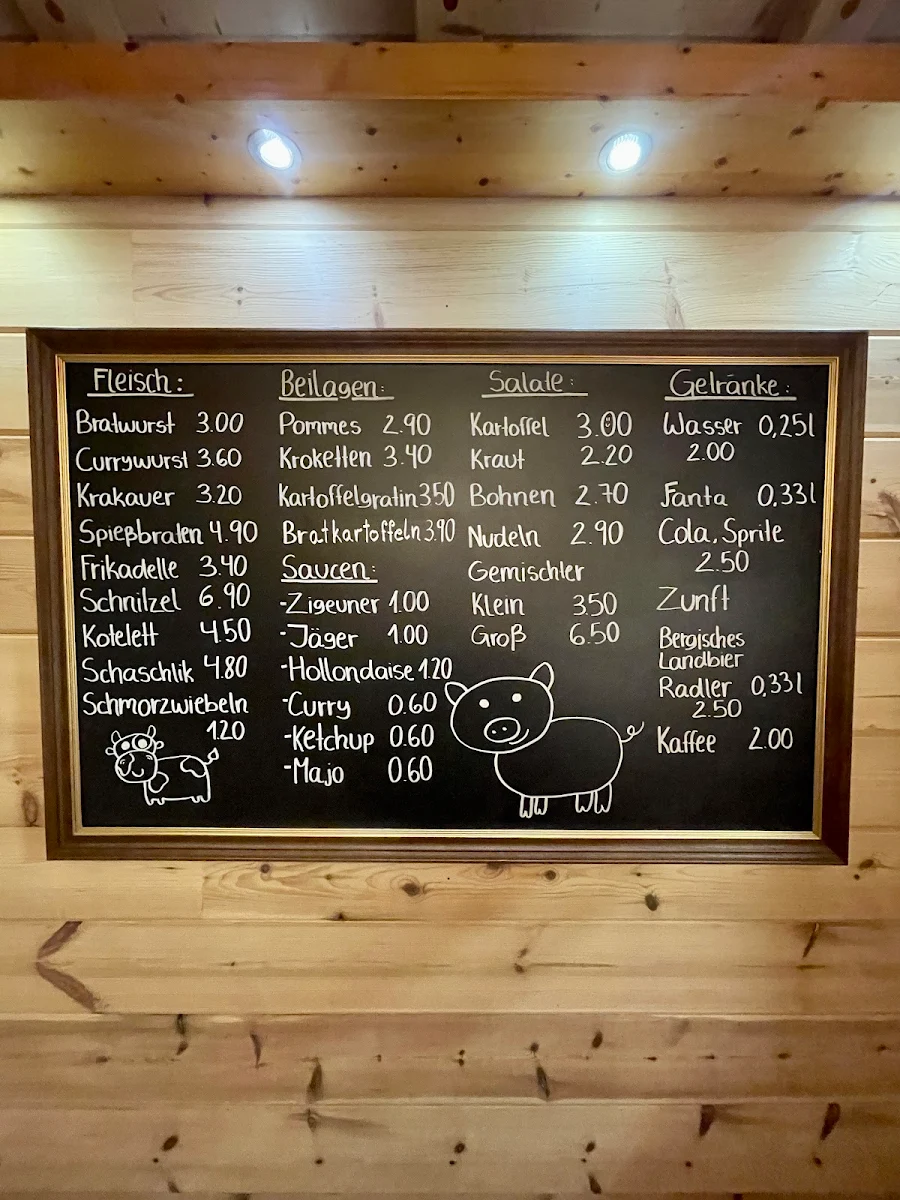 Fleisch:
Bratwurst 3.00
Currywurst 3.60
Krakauer 3.20
Spießbraten 4.90
Frikadelle 3.40
Schnitzel 6.90
Kotelett 4.50
Schaschlik 4.80
Schmorzwiebeln
1.20
Beilagen:
Pommes 2.90
Kroketten 3.40
Kartoffelgratin 3.50
Bratkartoffeln 3.90
Saucen:
-Zigeuner 1.00
-Jäger 1.00
-Hollondaise 1.20
-Curry 0.60
-Ketchup 0.60
-Majo 0.60
Salate:
Kartoffel 3.00
Kraut 2.20
Bohnen 2.70
Nudeln 2.90
Gemischter
Klein 3.50
Groß 6.50
Getränke:
Wasser 0,25l
2.00
Fanta 0,33l
Cola, Sprite
2.50
Zunft
Bergisches
Landbier
Radler 0,33l
2.50
Kaffee 2.00